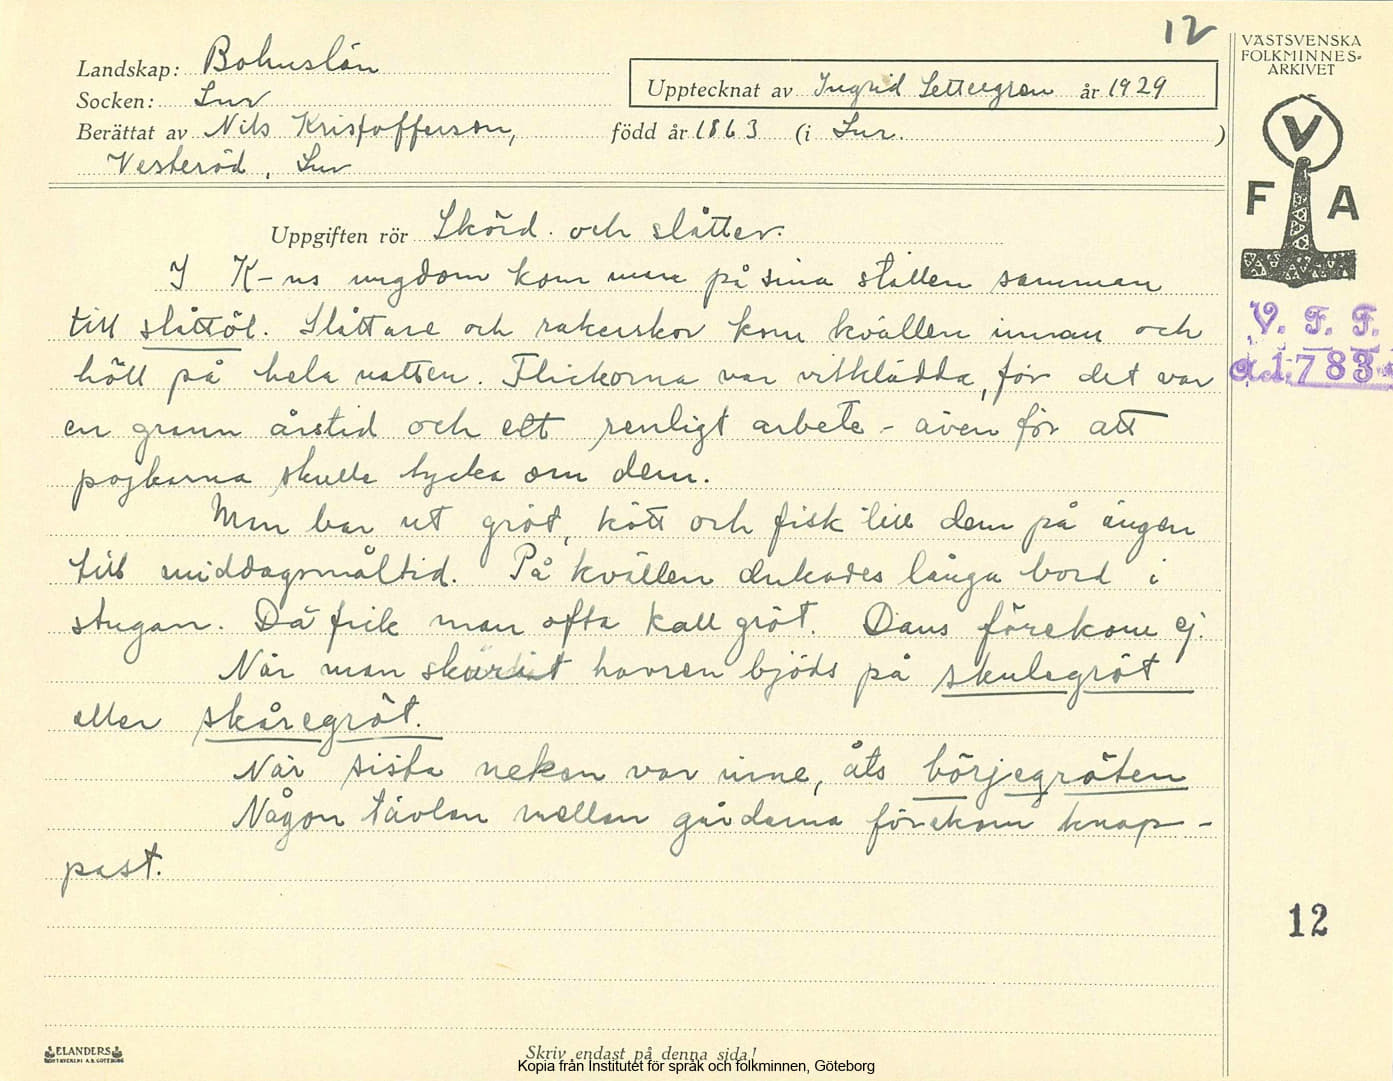 12
Landskap: Bohuslän
Upptecknat av Ingrid Settergren år 1929
Socken: Lur
Berättat av Nils Kristofferson, född år 1863 (i Lur. )
Vesteröd, Lur
VÄSTSVENSKA
FOLKMINNES-
ARKIVET
V
F A
V. F. F.
Acc. 1783
Uppgiften rör Skörd och slåtter.
I K-ns ungdom kom man på sina ställen samman
till slåttöl. Slåttare och rakerskor kom kvällen innan och
höll på hela natten. Flickorna var vitklädda, för det var
en grann årstid och ett renligt arbete - även för att
pojkarna skulle tycka om dem.
Man bar ut gröt, kött och fisk till dem på ängen
till middagsmåltid. På kvällen dukades långa bord i
stugan. Då fick man ofta kall gröt. Dans förekom ej.
När man skurit havren bjöds på skulegröt
eller skåregröt.
När sista neken var inne, åts börjegröten
Någon tävlan mellan gårdarna förekom knap-
past.
12
ELANDERS
BOKTRYCKERI A.B. GÖTEBORG
Skriv endast på denna sida!
Kopia från Institutet för språk och folkminnen, Göteborg